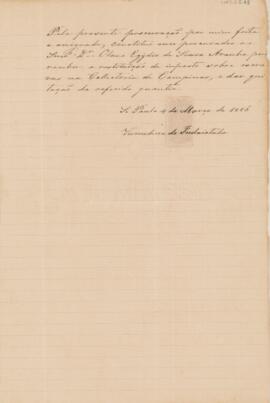 Pela presente procuração por mim feita
e assignada, constituo meu procurador o
Snr. Dr. Olavo Egydio de Souza Aranha, para
receber a restituição do imposto sobre
na Collectoria de Campinas, e dar qui-
tação da referida quantia.
S. Paulo 4 de Março de 1886
de Indaiatuba